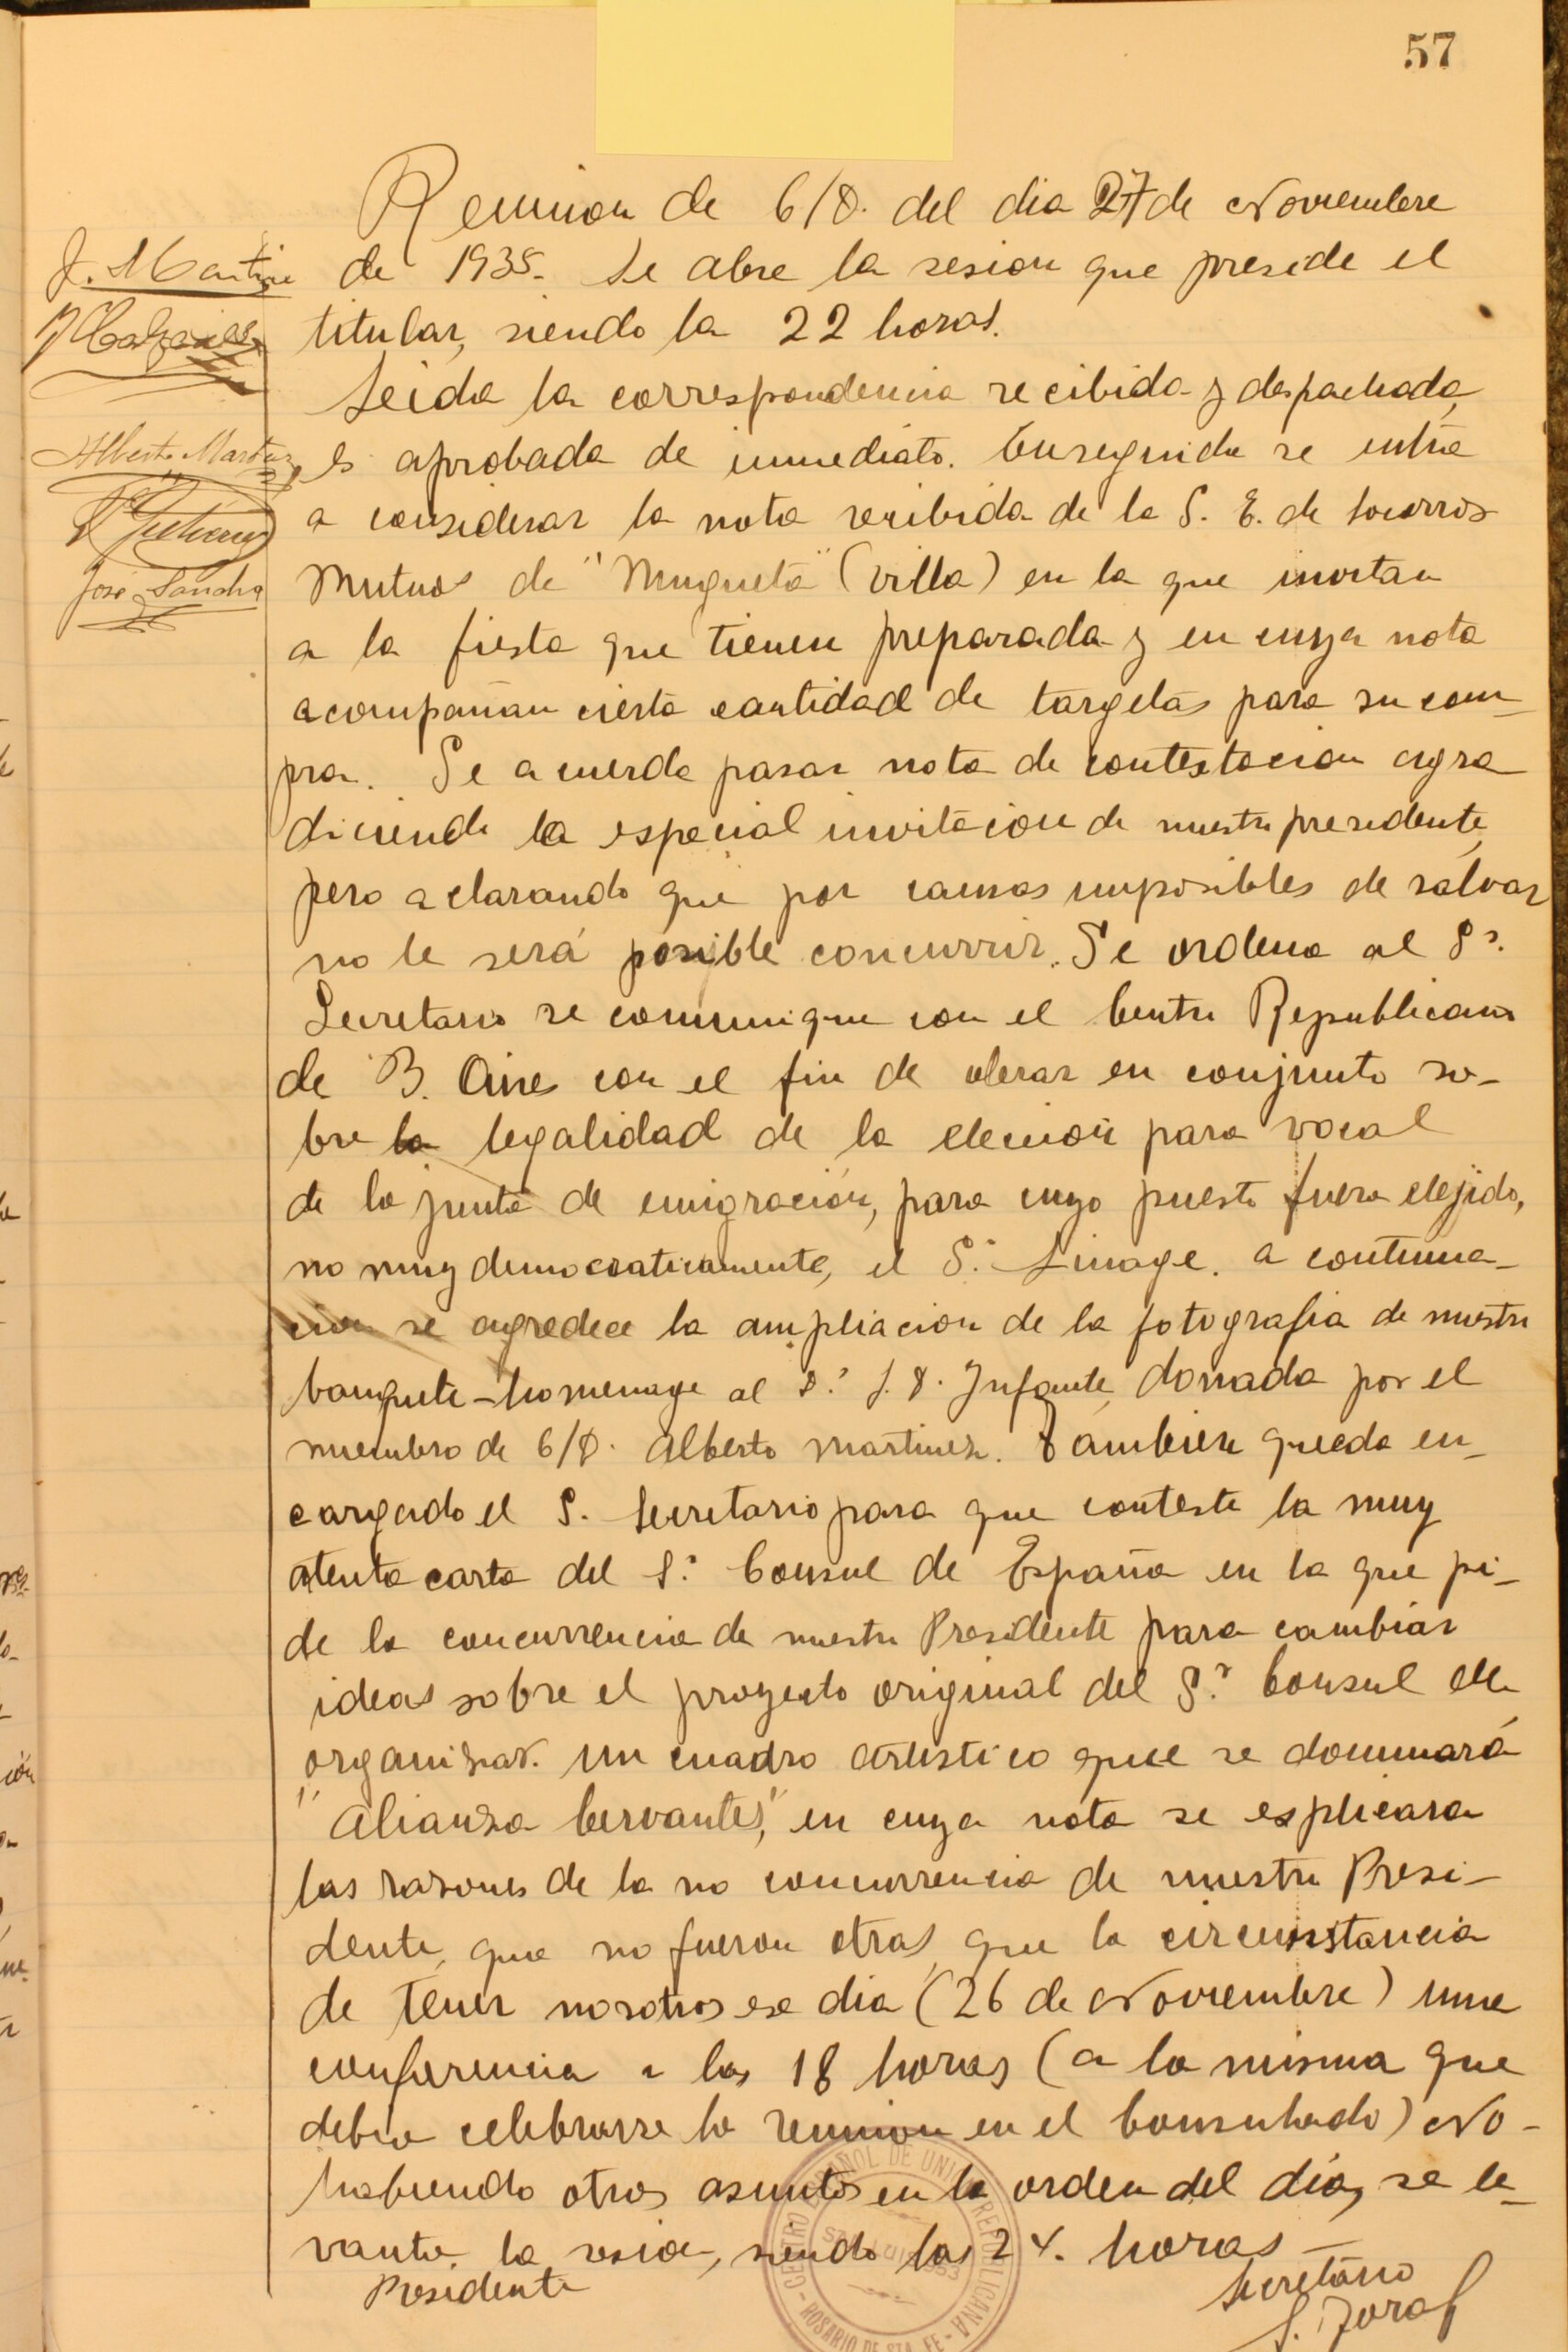 57
Reunion de C/D. del dia 27 de Noviembre
de 1935. Se abre la sesion que preside el
titular, siendo la 22 horas.
Leida la correspondencia recibida y despachada,
es aprobada de inmediato. Enseguida se entra
a considerar la nota recibida de la S. E. de Socorros
Mutuos de "Mugueta" (villa) en la que invitan
a la fiesta que tienen preparada y en cuya nota
acompañan cierta cantidad de targetas para su com-
pra. Se acuerda pasar nota de contestacion agra
diciendo la especial invitacion de nuestro presidente,
pero aclarando que por causas imposibles de salvar
no le será posible concurrir. Se ordena al Sr.
Secretario se comunique con el Centro Republicano
de B. Aires con el fin de obrar en conjunto so-
bre la legalidad de la elección para vocal
de la junta de emigración, para cuyo puesto fuera elejido,
no muy democraticamente, el Sr. Linage. a continua-
cion se agredece la ampliacion de la fotografia de nuestro
banquete-homenage al D. J. D. Infante, donada por el
miembro de C/D. Alberto Martinez. Tambien queda en-
cargado el S. Secretario para que conteste la muy
atenta carta del Sr. Consul de España en la que pi-
de la concurrencia de nuestro Presidente para cambiar
ideas sobre el proyecto original del Sr. Consul de
organizar un cuadro artistico que se dominará
"Alianza Cervantes," en cuya nota se esplicara
las razones de la no concurrencia de nuestro Presi-
dente, que no fueron otras que la circunstancia
de tener nosotros ese dia (26 de Noviembre) una
conferencia a las 18 horas (a la misma que
debia celebrarse la reunion en el Consulado) No-
habiendo otros asuntos en la orden del día, se le-
vanta la sesion, siendo las 24. horas —
Presidente
Secretario
J. Martine
Alberto Martinez
José Sancho
CENTRO ESPAÑOL DE UNION REPUBLICANA
ROSARIO DE STA. FE